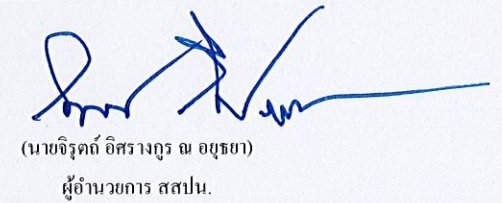 (นายจิรุตถ์ อิศรางกูร ณ อยุธยา)
ผู้อำนวยการ สสปน.